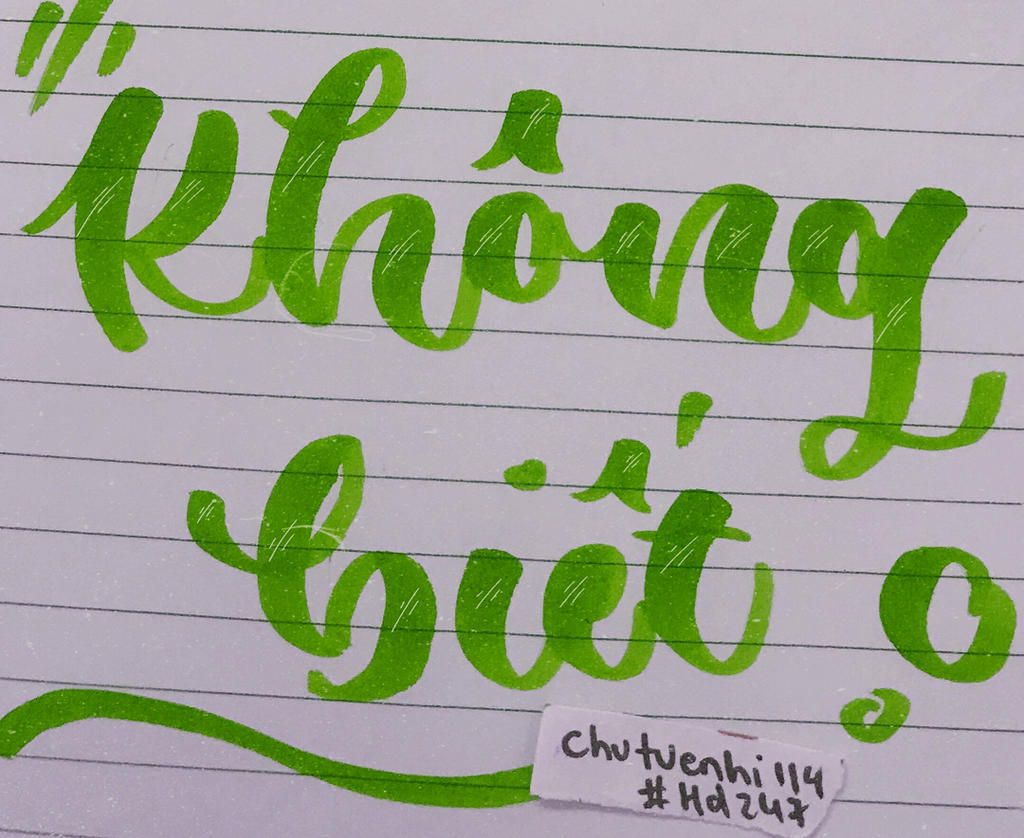 Không
biết
chutuenhi114
#Hd247